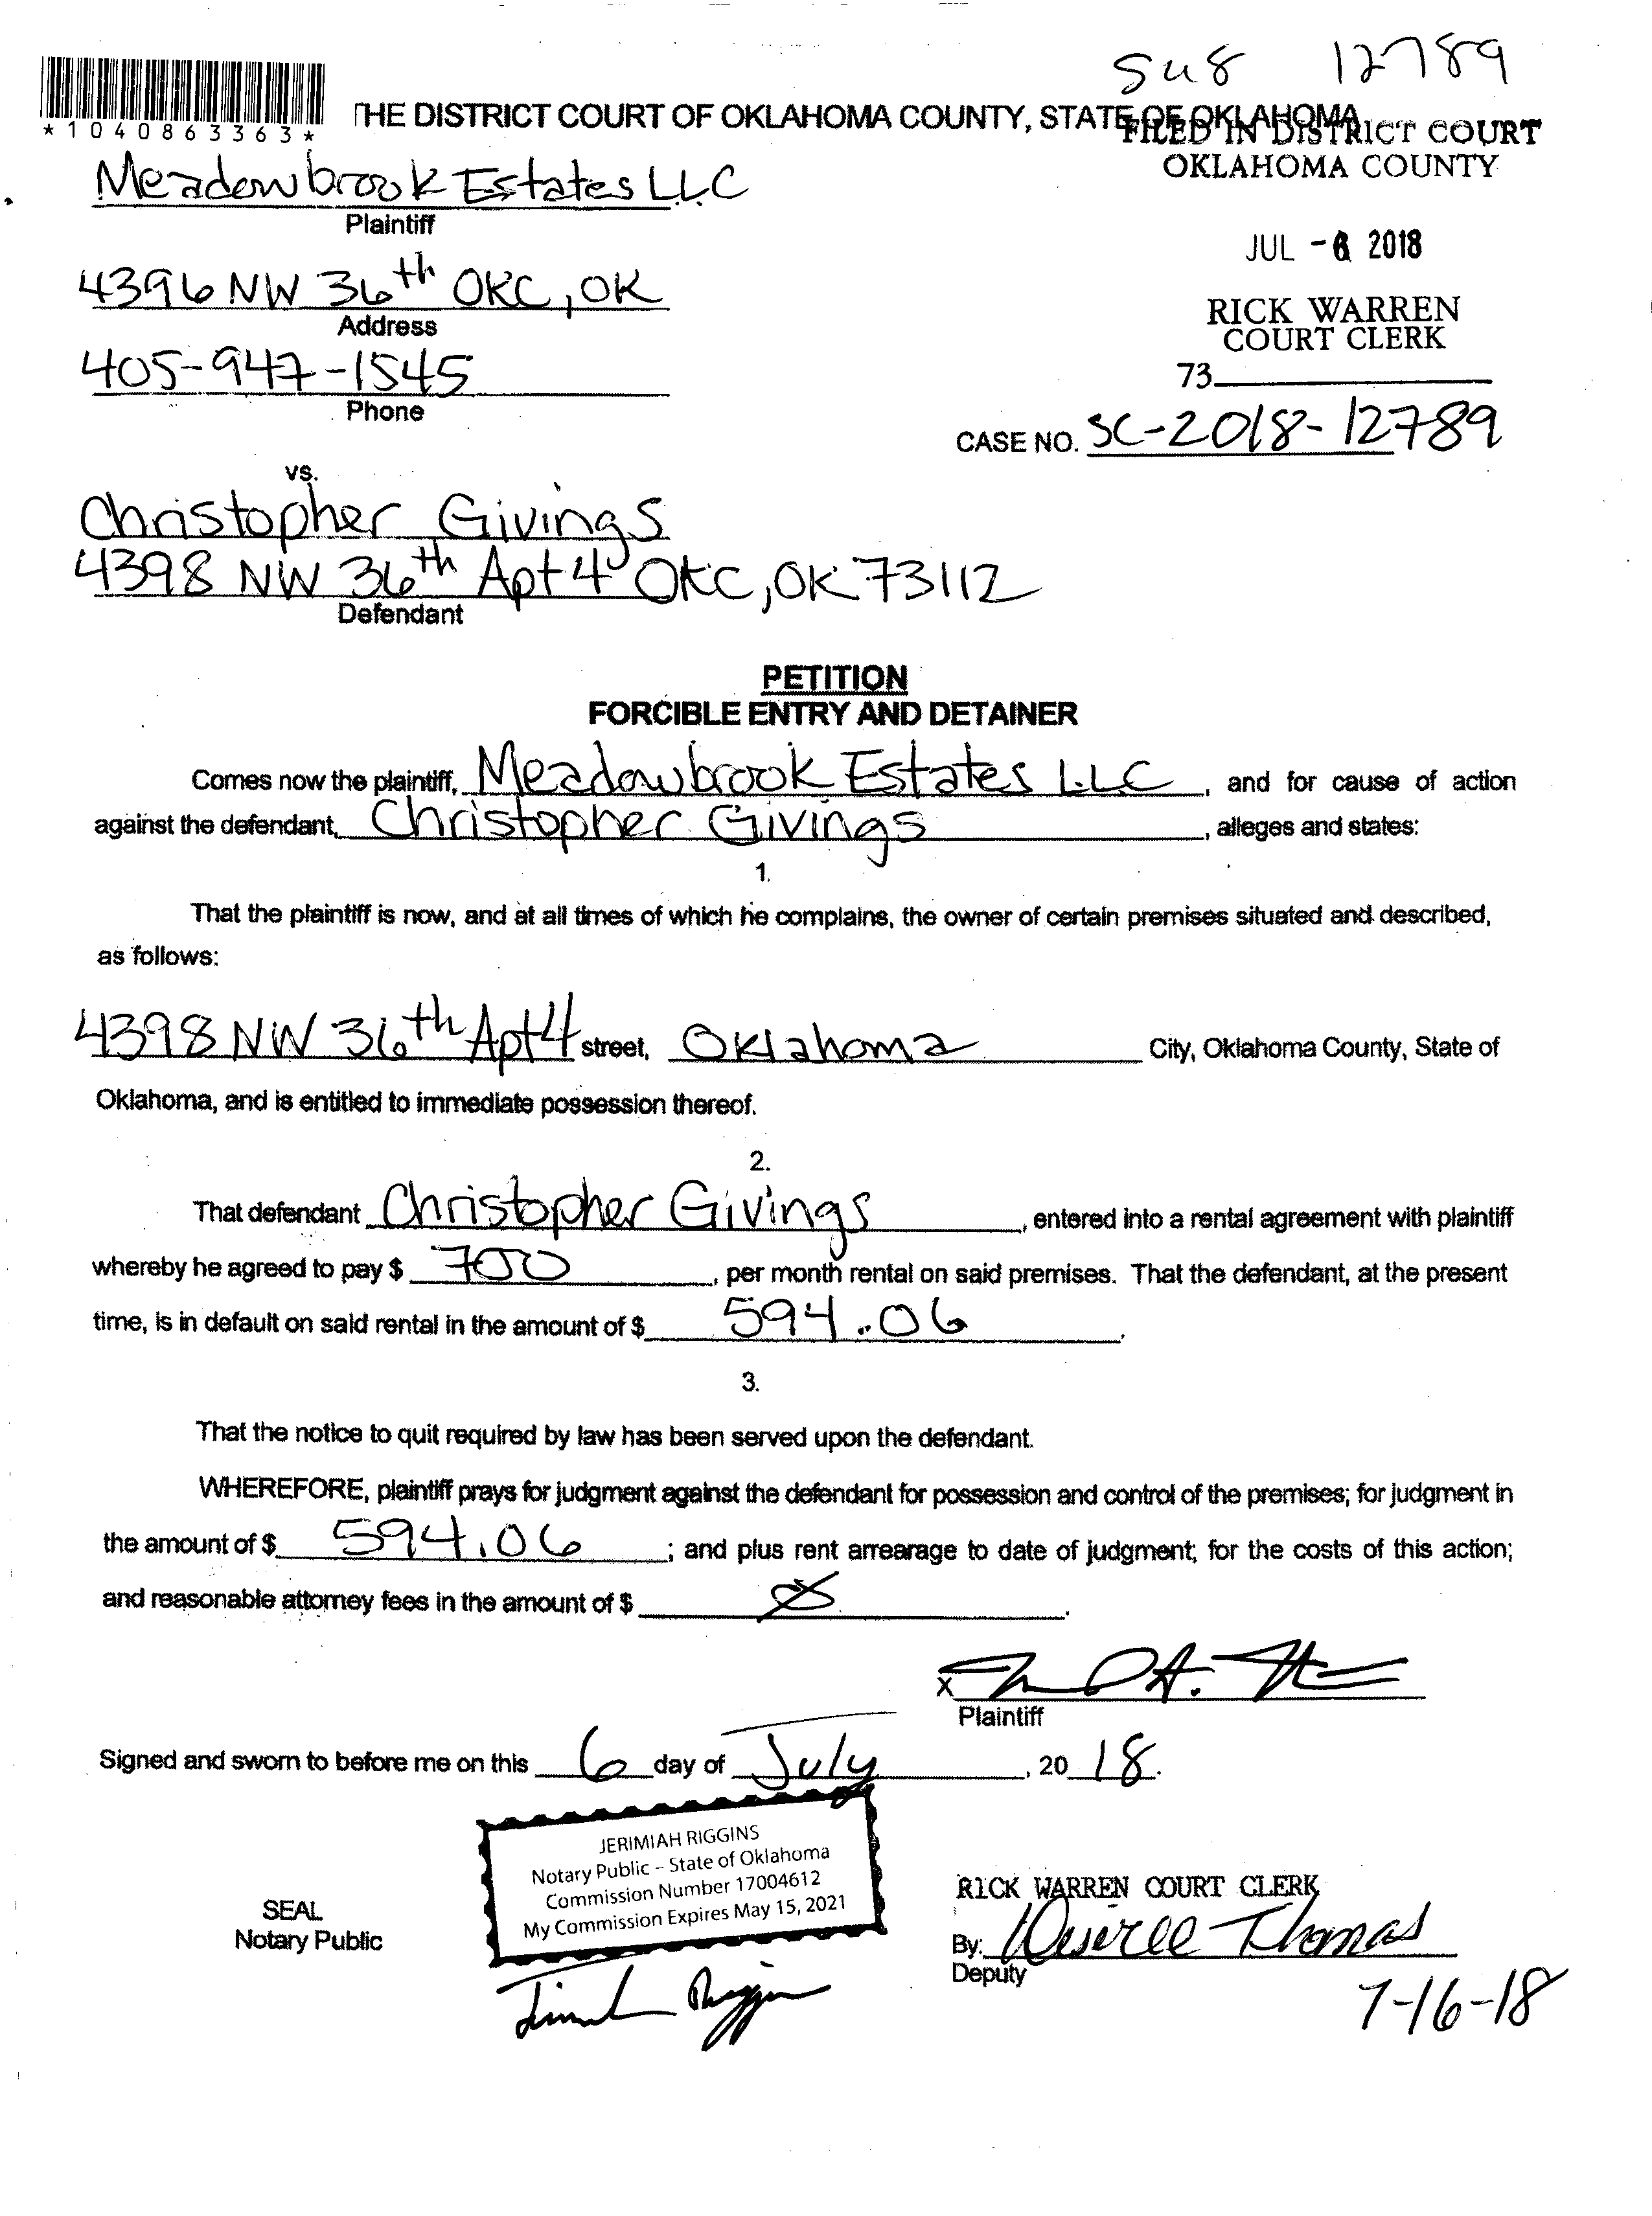 SU8 12789
*1040863363*
THE DISTRICT COURT OF OKLAHOMA COUNTY, STATE OF OKLAHOMA
FILED IN DISTRICT COURT
OKLAHOMA COUNTY
Meadowbrook Estates LLC
Plaintiff
JUL -6 2018
4396 NW 36th OKC, OK
Address
RICK WARREN
COURT CLERK
405-947-1545
Phone
73
CASE NO. SC-2018-12789
vs.
Christopher Givings
4398 NW 36th Apt 4 OKC, OK 73112
Defendant
PETITION
FORCIBLE ENTRY AND DETAINER
Comes now the plaintiff, Meadowbrook Estates LLC, and for cause of action
against the defendant, Christopher Givings, alleges and states:
1.
That the plaintiff is now, and at all times of which he complains, the owner of certain premises situated and described,
as follows:
4398 NW 36th Apt 4 street, Oklahoma City, Oklahoma County, State of
Oklahoma, and is entitled to immediate possession thereof.
2.
That defendant Christopher Givings, entered into a rental agreement with plaintiff
whereby he agreed to pay $ 700, per month rental on said premises. That the defendant, at the present
time, is in default on said rental in the amount of $ 594.06.
3.
That the notice to quit required by law has been served upon the defendant.
WHEREFORE, plaintiff prays for judgment against the defendant for possession and control of the premises; for judgment in
the amount of $ 594.06; and plus rent arrearage to date of judgment; for the costs of this action;
and reasonable attorney fees in the amount of $ Ø.
X
Plaintiff
Signed and sworn to before me on this 6 day of July, 2018.
JERIMIAH RIGGINS
Notary Public – State of Oklahoma
Commission Number 17004612
My Commission Expires May 15, 2021
SEAL
Notary Public
RICK WARREN COURT CLERK
By: Desiree Thomas
Deputy
7-16-18